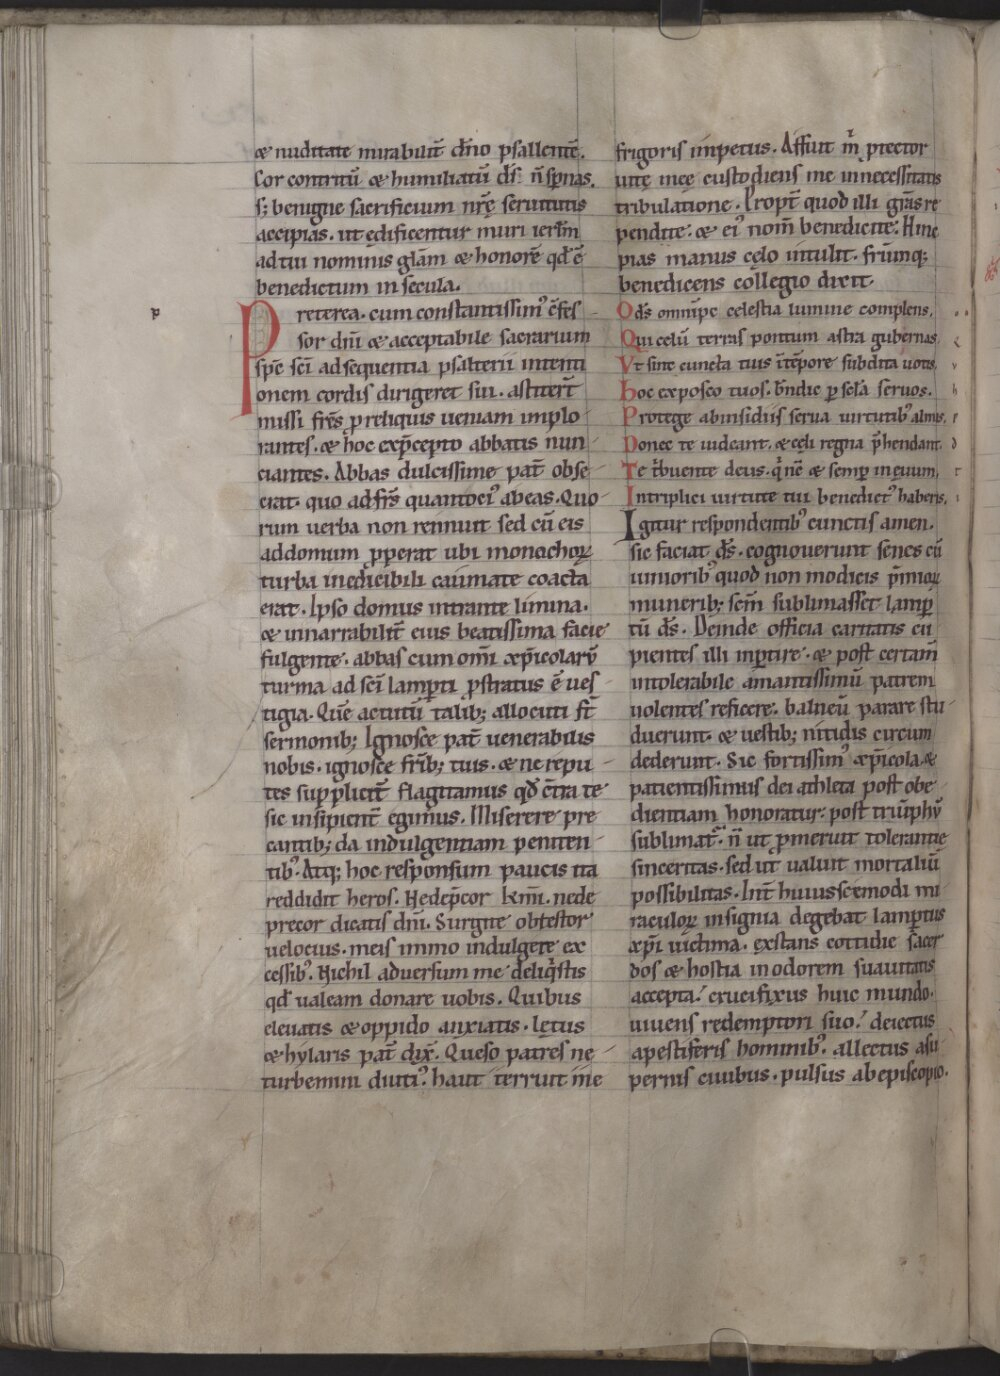 & nuditate mirabilit̄ dn̄o psallentē.
Cor contritū & humiliatū d̄s n̄ sp̄nas.
s; benigne sacrificium nr̄ę seruitutis
accipias. ut ędificentur muri ierl̄m
ad tui nominis glām & honorē qd̄ ē
benedictum in secula.
Preterea. cum constantissim᾽ c̄fes
sor dn̄i & acceptabile sacrarium
sp̄c sc̄i ad sequentia psalterii intenti
onem cordis dirigeret sui. astiter̄t
missi fr̄s ꝓ reliquis ueniam implo-
rantes. & hoc ex p̄cepto abbatis nun-
ciantes. Abbas dulcissime pat̄ obse-
crat. quo ad fr̄s quantoci᾽ abeas. Quo-
rum uerba non rennuit sed cū eis
ad domum ꝓperat ubi monachoꝝ
turba inedicibili caumate coacta
erat. Ipso domus intrante limina.
& innarrabilit̄ eius beatissima facie
fulgente. abbas cum om̄i xp̄icolarū
turma ad sc̄i lamꝑti ꝓstratus ē ues
tigia. Quē actutū talib; allocuti st̄
sermonib; Ignosce pat̄ uenerabilis
nobis. ignosce fr̄ib; tuis. & ne repu-
tes supplicit̄ flagitamus qd̄ c̄tra te
sic insipient̄ egimus. Miserere pre
cantib; da indulgentiam peniten-
tib᾽. Atq; hoc responsum paucis ita
reddidit heros. Ne dep̄cor km̄i. ne de
precor dicatis dn̄i. Surgite obtestor
uelocius. meis immo indulgete ex
cessib᾽. Nichil aduersum me deliq̄stis
qd̄ ualeam donare uobis. Quibus
eleuatis & oppido anxiatis. letus
& hylaris pat̄ dix̄. Queso patres ne-
turbemini diuti᾽. haut terruit me
p
frigoris impetus. Affuit m̄ ꝓtector
uitę meę custodiens me in necessitatis
tribulatione. Propt̄ quod illi gr̄as re
pendite. & ei᾽ nom̄ benedicite. Hinc
pias manus cęlo intulit. fr̄umq;
benedicens collegio dixit.
O ds̄ omnip̄c celestia lumine complens.
Qui celū terras pontum astra gubernas.
Vt sint cuncta tuis ī tēpore subdita uotis.
Hoc exposco tuos. bn̄dic ꝑ sc̄la seruos.
Protege ab insidiis serua uirtutib᾽ almis.
Donec te uideant. & cęli regna p̄hendant.
Te t̄buente deus. q̄ nc̄ & semꝑ in ęuum.
In triplici uirtute tui benedict᾽ haberis.
Igitur respondentib᾽ cunctis amen.
sic faciat ds̄. cognouerunt senes cū
iuniorib᾽ quod non modicis p̄mioꝝ
munerib; sc̄m sublimasset lamꝑ
tū ds̄. Deinde officia caritatis cu
pientes illi inꝑtire. & post certam̄
intolerabile amantissimū patrem
uolentes reficere. balneū parare stu-
duerunt. & uestib; nitidis circum
dederunt. Sic fortissim᾽ xp̄icola &
patientissimus dei athleta post obe-
dientiam honoratur. post triūphū
sublimat᷑. n̄ ut ꝓmeruit tolerantię
sinceritas. sed ut ualuit mortaliū
possibilitas. Int̄ huiuscemodi mi
raculoꝝ insignia degebat lamꝑtus
xp̄i uictima. exstans cottidie sacer
dos & hostia in odorem suauitatis
accepta. crucifixus huic mundo.
uiuens redemptori suo. deiectus
a pestiferis hominib᾽. allectus a su
pernis ciuibus. pulsus ab episcopio.